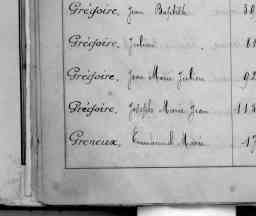 Grégoire, Jean Baptiste 80
Grégoire, Julien
Grégoire, Jean Marie Julien 92
Grégoire, Joseph Marie Jean 118
Greneux, Emmanuel Marie